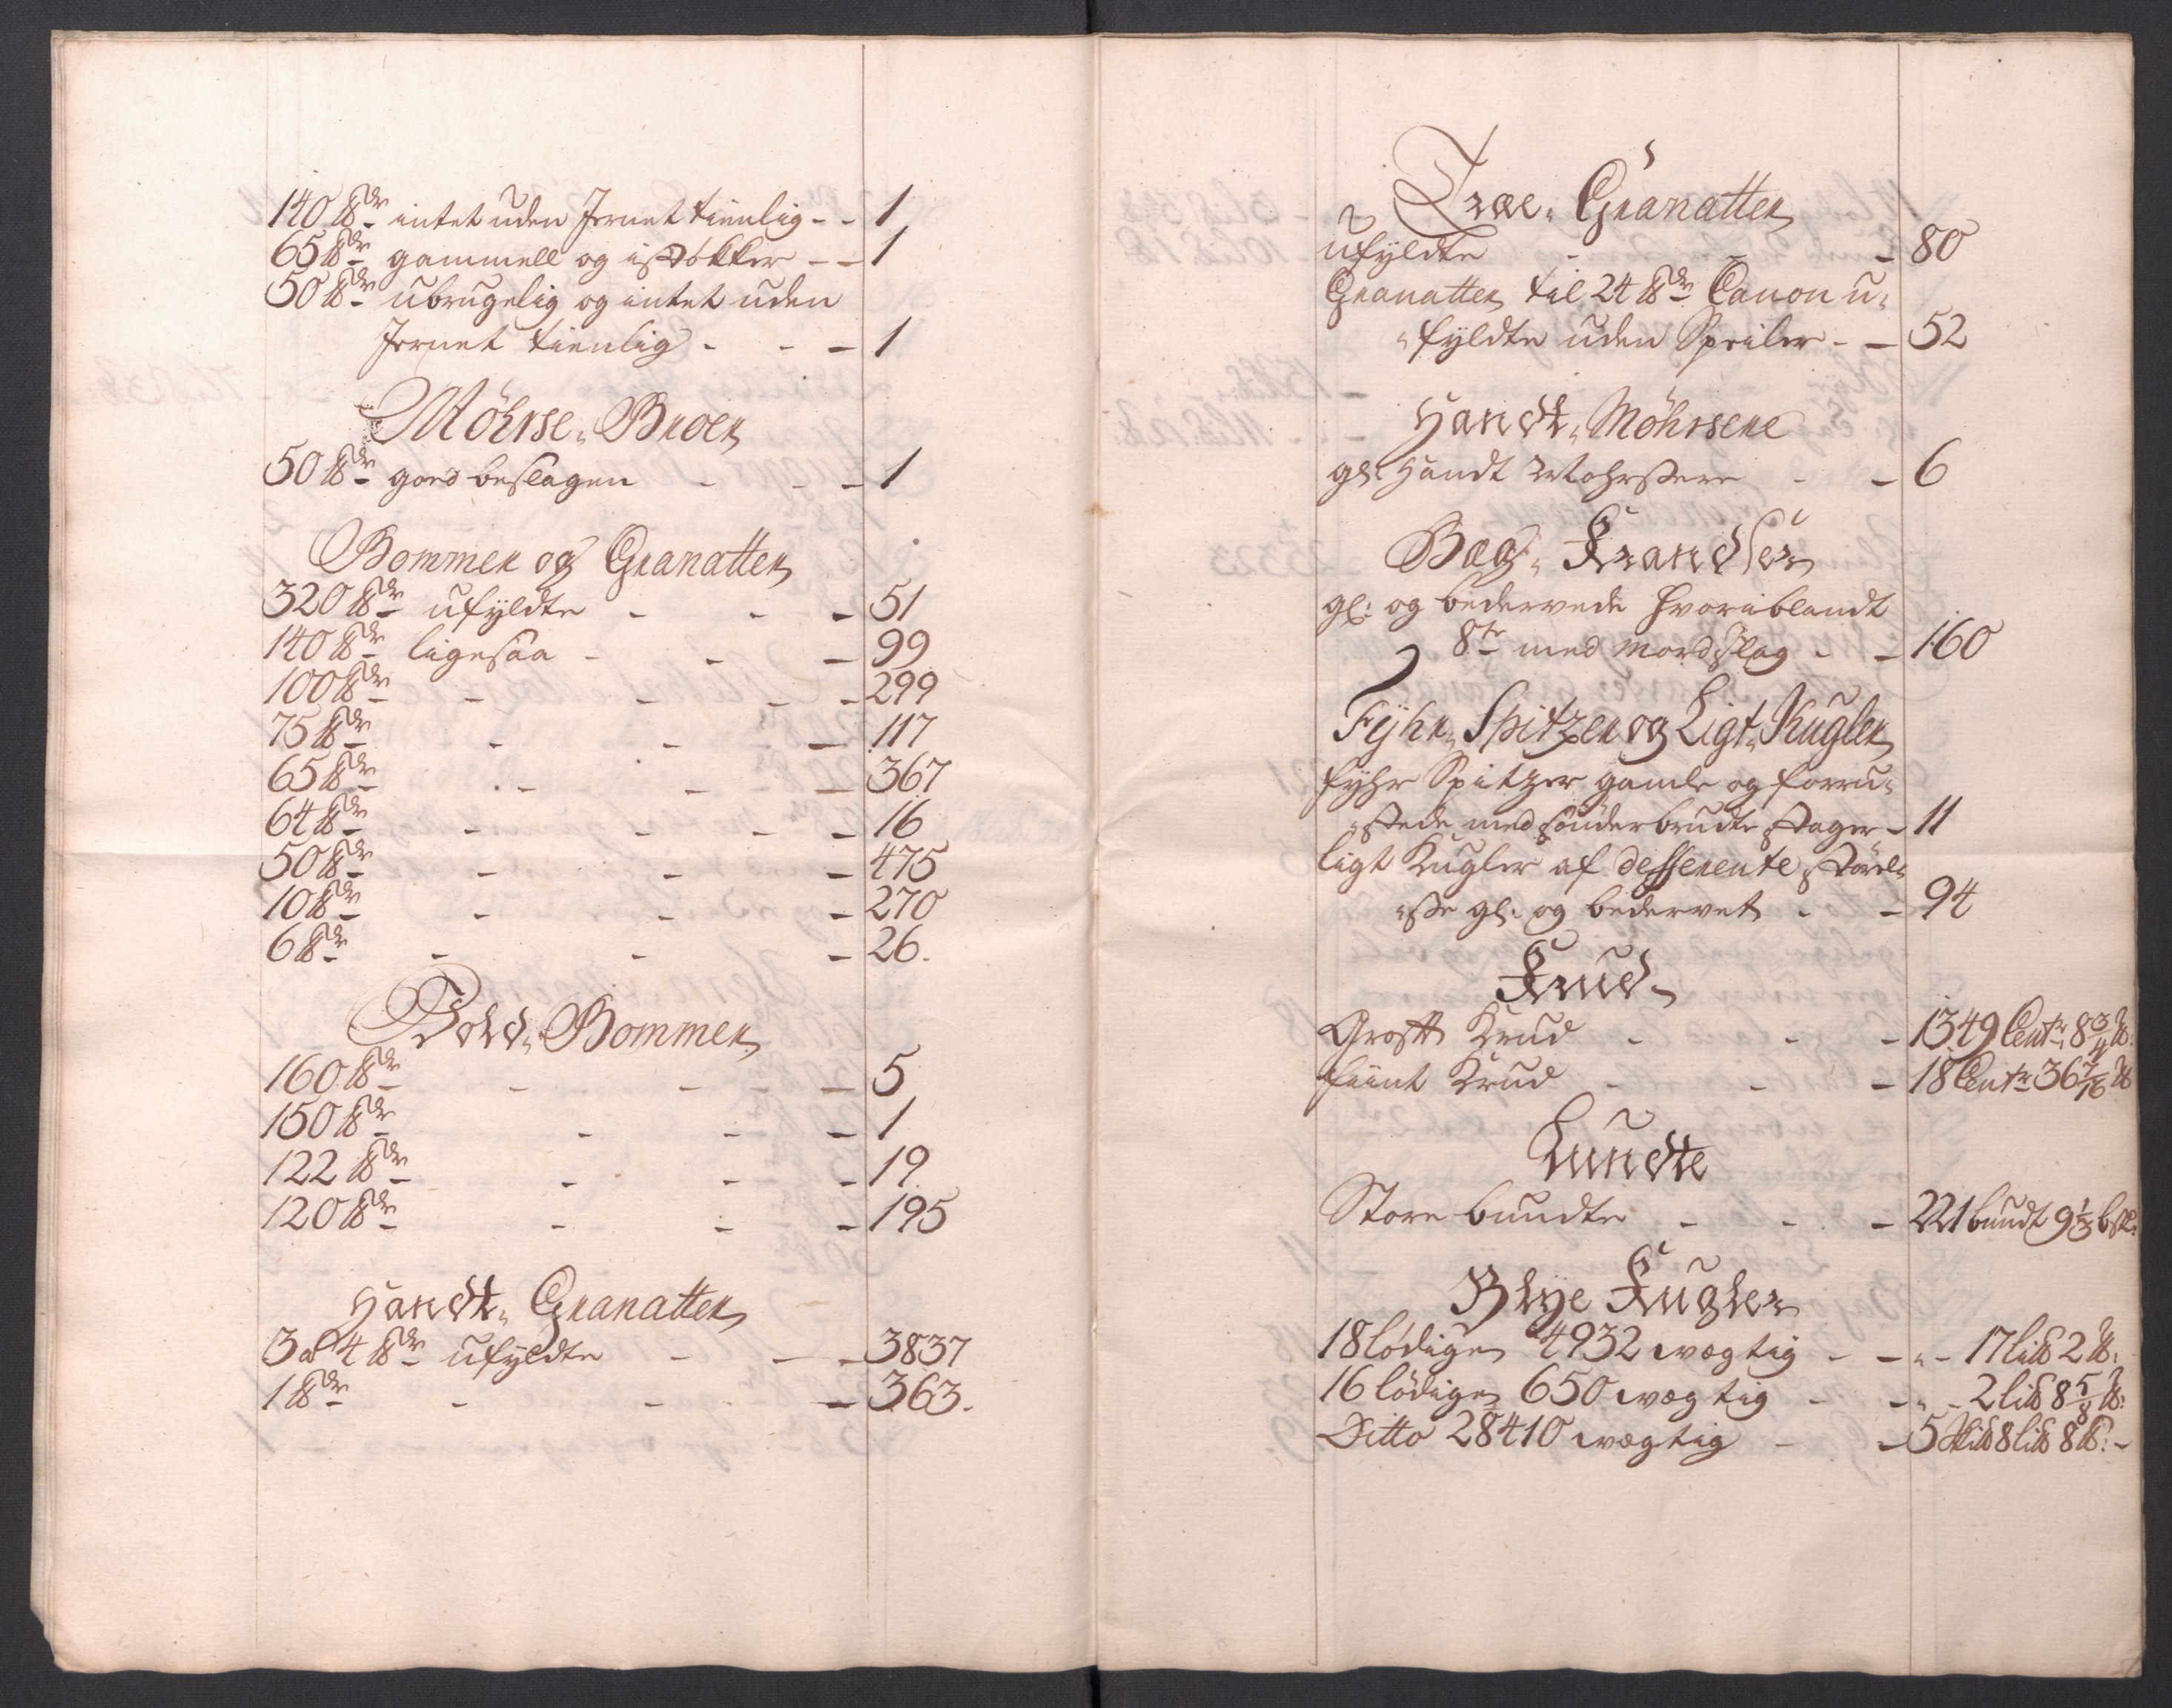 140 ℔dr intet uden Jernet tienlig - - 1
65 ℔dr gammell og i støkker - - 1
50 ℔dr ubrugelig og intet uden
Jernet tienlig - - - 1
Møhrse-Broer
50 ℔dr goed beslagen - - - 1
Bommer og Granatter
320 ℔dr ufyldte - - - 51
140 ℔dr ligesaa - - - 99
100 ℔dr - - - - 299
75 ℔dr - - - 117
65 ℔dr - - - 367
64 ℔dr - - - 16
50 ℔dr - - - 475
10 ℔dr - - - 270
6 ℔dr - - - 26.
Bommer
160 ℔dr - - - 5
150 ℔dr - - - 1
122 ℔dr - - - 19
120 ℔dr - - - 195
Handt-Granatter
3 a 4 ℔dr ufyldte - - - 3837
1 ℔dr - - - 363.
Træe-Granatter
ufyldte - - - 80
Granatter til 24 ℔dr Canon u-
fyldte uden Speiler - - 52
Handt-Møhrsere
gl: Handt Møhrssere - - 6
Beg-Krandser
gl: og bedervede hvoriblandt
8te med mordslag - - 160
Fyhr-Spitzer og Ligt-Kugler
fyhr Spitzer gamle og forru-
stede med sønderbrudte stager - 11
ligt Kugler af defferente størel-
sse gl: og bedervet - - 94
Krud
Groft Krud - - - 1349 Centr 8 3/4 ℔:
fiint Krud - - - 18 Centr 36 7/16 ℔
Lundte
Store bundte - - - 221 bundt 9 1/3 bst:
Blye Kugler
18 lødiger 4932 wægtig - - - 17 li℔ 2 ℔:
16 lødiger 650 wægtig - - - 2 li℔ 8 5/8 ℔:
Ditto 28410 wægtig - - 5 Ski℔ 8 li℔ 8 ℔: -